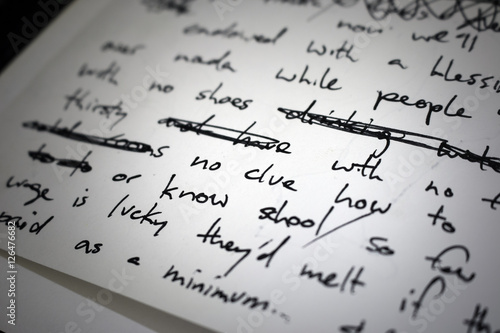 now we'll
endowed with a blessin
over nada while people
with no shoes drinking wat
thirsty not have with no t
no clue how to
to to or know shool so few
wage is lucky they'd melt if th
paid as a minimum...